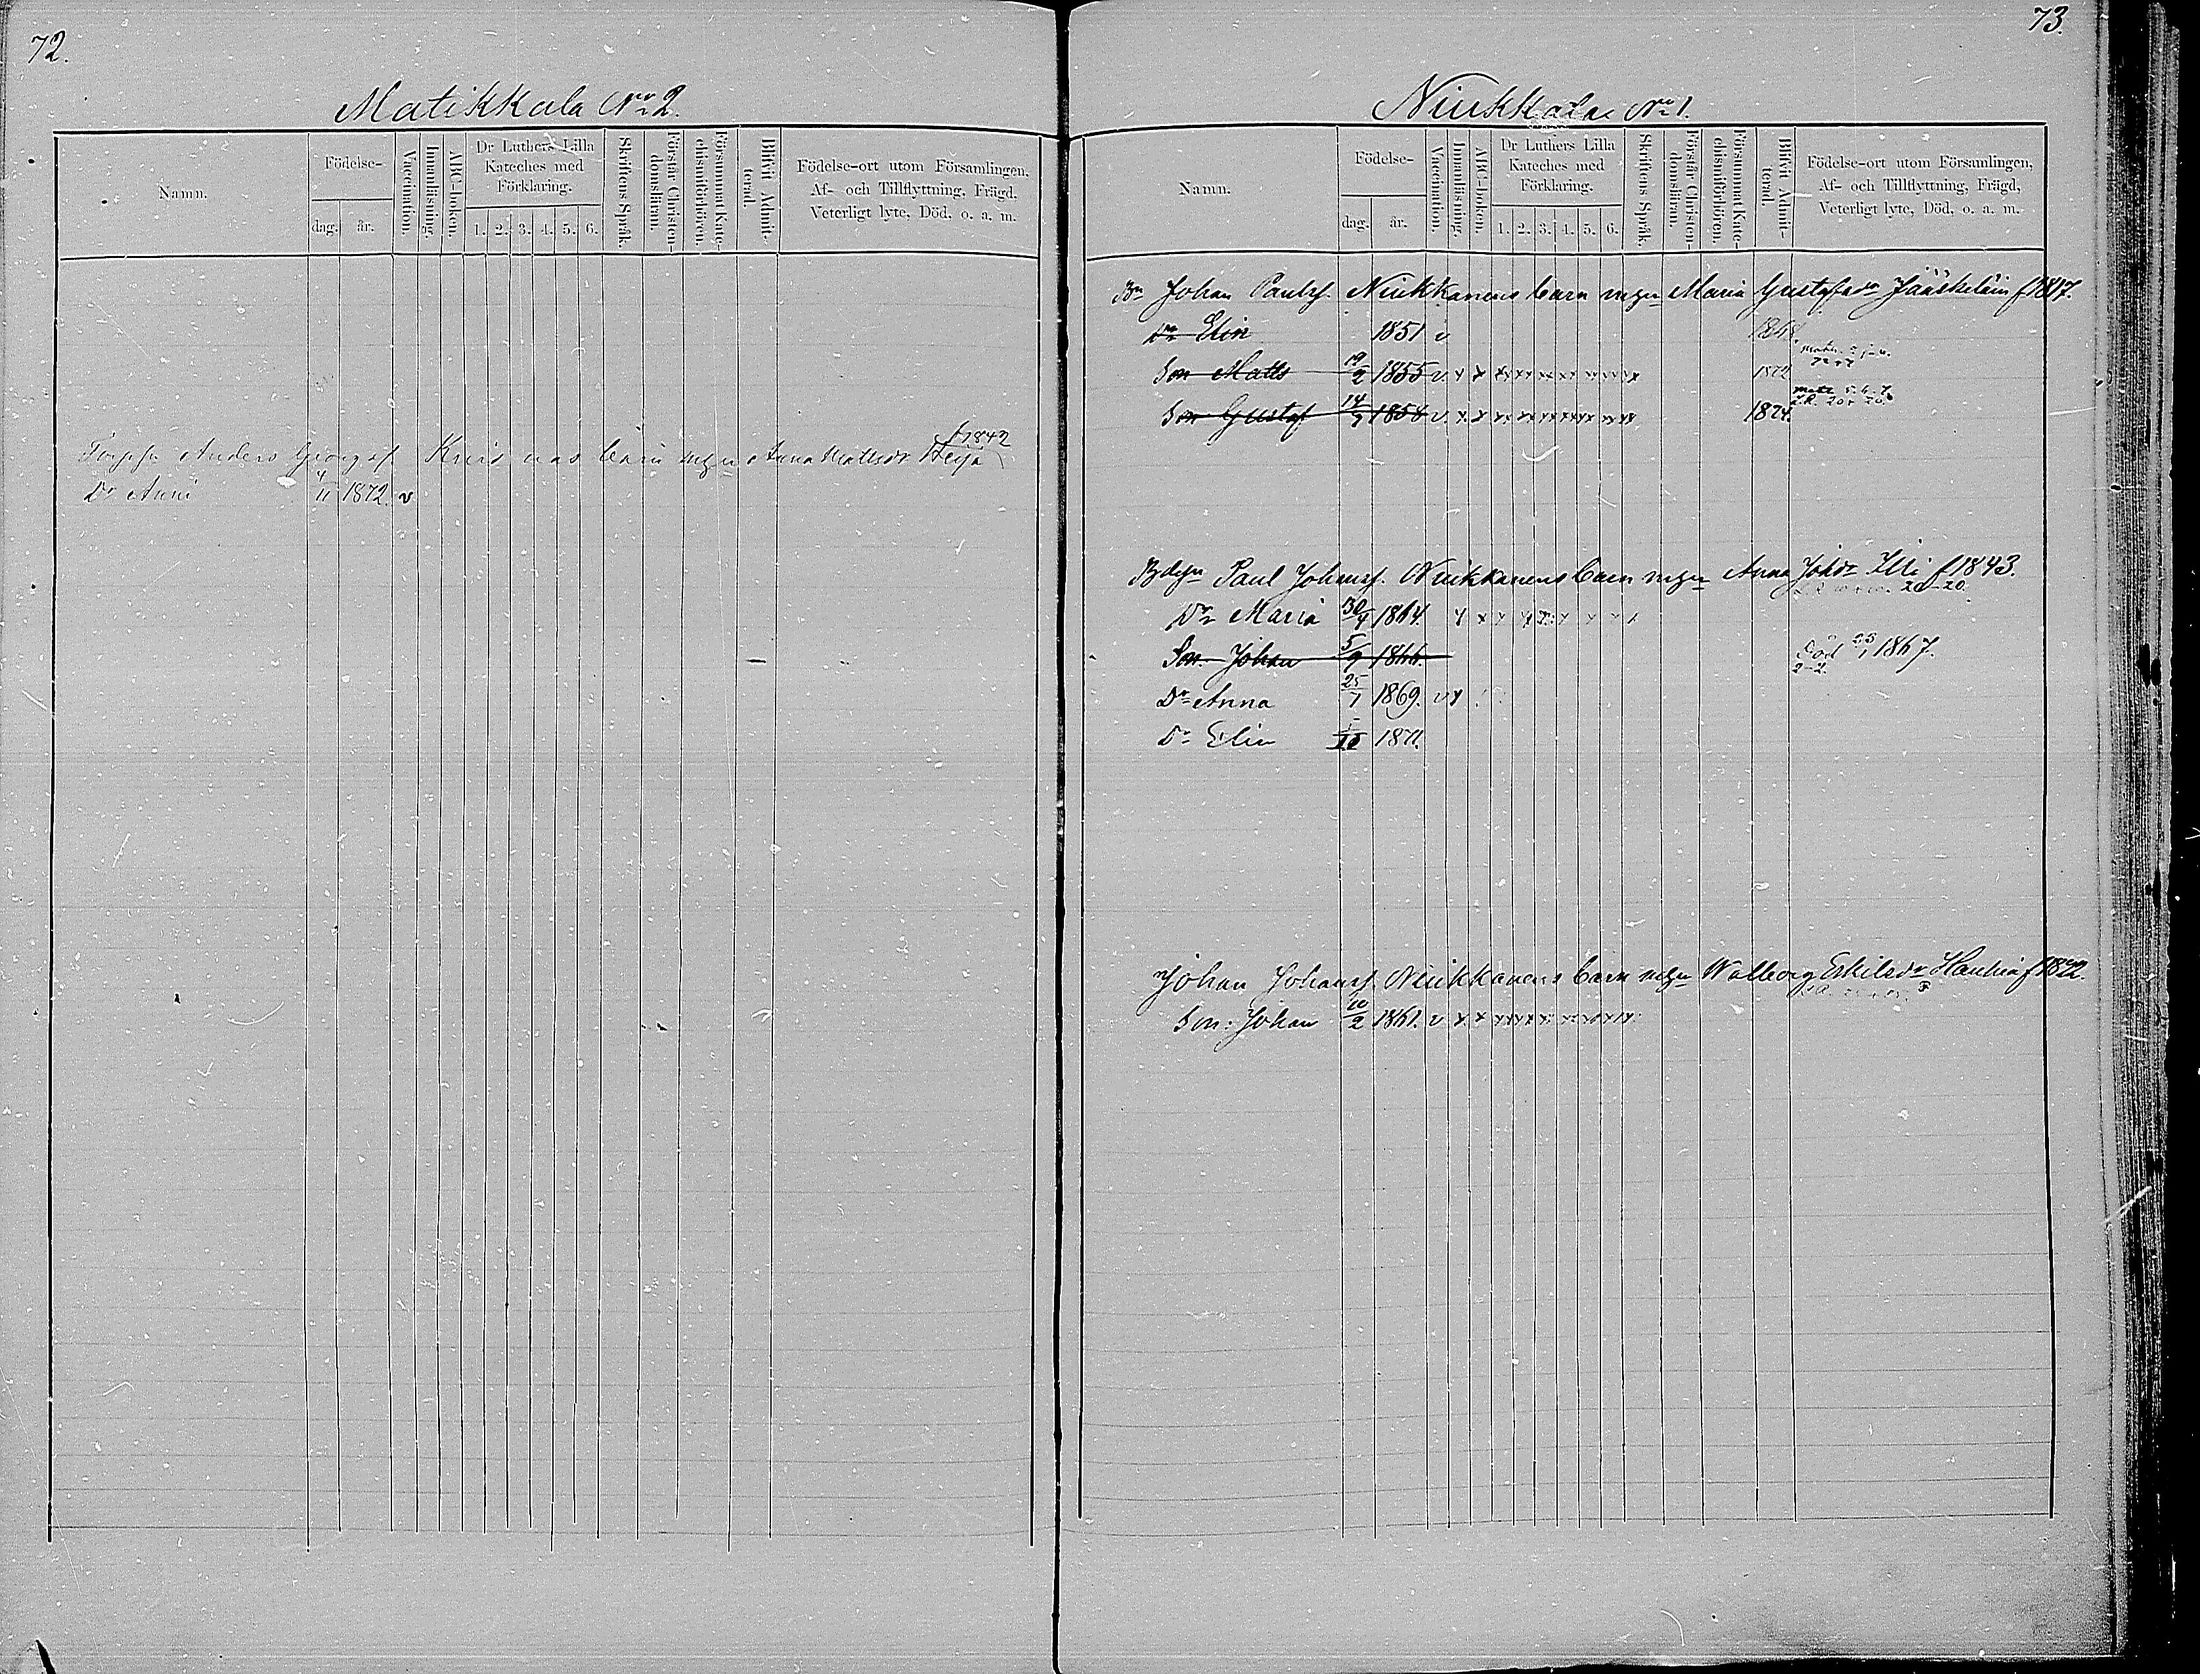 72.
Matikkala No 2.
Namn.
Födelse-
dag.
år.
Vaccination.
Innanläsning.
ABC-boken.
Dr Luthers Lilla
Kateches med
Förklaring.
1. 2. 3. 4. 5. 6.
Skriftens Språk.
Förstår Christen-
domsläran.
Försummat Kate-
chismiförhören.
Blifvit Admit-
terad.
Födelse-ort utom Församlingen,
Af- och Tillflyttning, Frägd,
Veterligt lyte, Död, o. a. m.
f 1842
Anders Georgsf barn Anna Mattsdr
Dr Anni 4/11 1872. v
73.
Niukkala No 1.
Namn.
Födelse-
dag.
år.
Vaccination.
Innanläsning.
ABC-boken.
Dr Luthers Lilla
Kateches med
Förklaring.
1. 2. 3. 4. 5. 6.
Skriftens Språk.
Förstår Christen-
domsläran.
Försummat Kate-
chismiförhören.
Blifvit Admit-
terad.
Födelse-ort utom Församlingen,
Af- och Tillflyttning, Frägd,
Veterligt lyte, Död, o. a. m.
Bn Johan Paulsf. Niukkanens barn Maria Gustafsdr Jääskeläin f 1817.
Dr Elin 1851 v 1868.
Son Matts 19/2 1855 v. x x x x x x x x x x x 1872
Son Gustaf 14/9 1858 v. x x x x x x x x x x 1874.
Paul Johansf. Niukkanens barn Anna Johdr Illi f 1843.
20-20.
Dr Maria 30/4 1864. x x x x x x x
Son Johan 5/9 1866. Död 23/1 1867.
2-2.
Dr Anna 25/1 1869. v x
Dr Elin 1871.
Johan Johansf. Niukkanens barn Walborg Eskilsdr f 1822.
Son: Johan 10/2 1861. v x x x x x x x x x x x